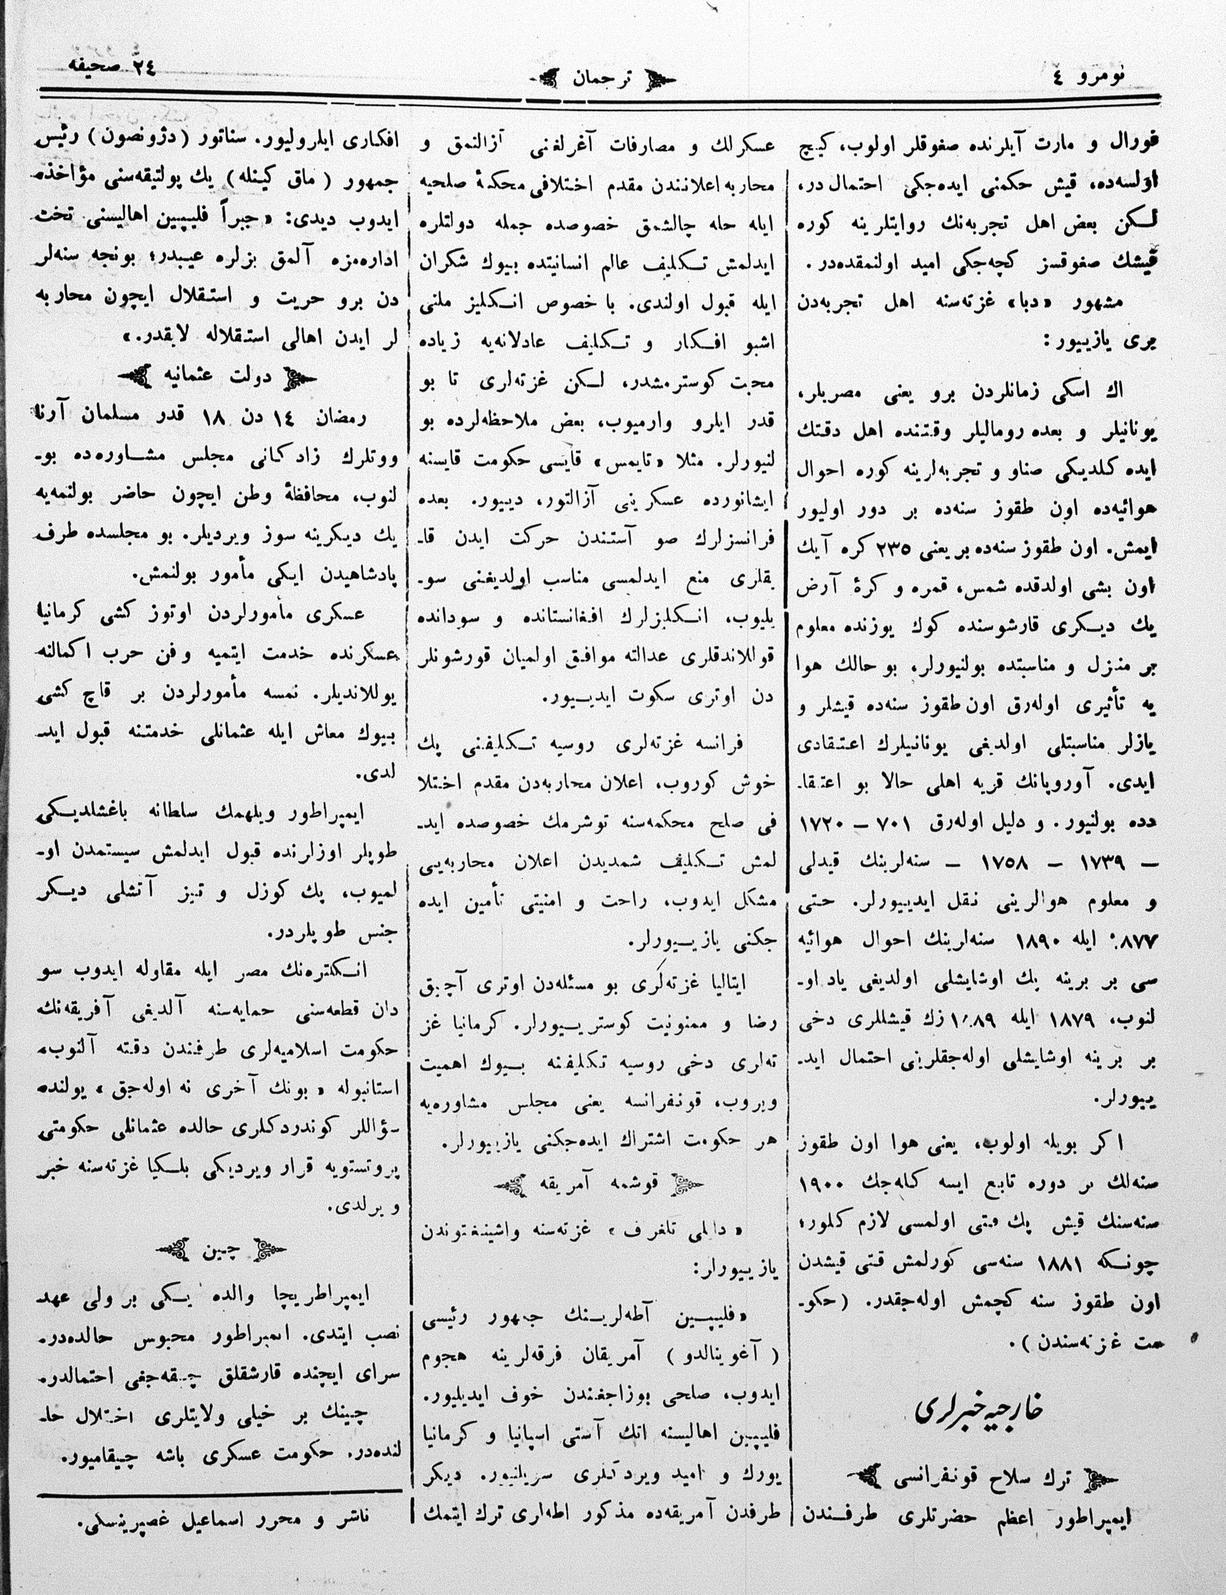 نومرو ٤
ترجمان
٢٤ صحیفه
قورال و مارت آیلرنده صغوقلر اولوب، کیچ
اولسه‌ده، قیش حکمنی ایده‌جکی احتمال در،
لـکن بعض اهل تجربه‌نك روایتلرینه کوره
قیشك صغوقسز کچه‌جکی امید اولنمقده‌در.
مشهور «دبا» غزته‌سنه اهل تجربه‌دن
بری یازییور:
اك اسکی زمانلردن برو یعنی مصریلر،
یونانیلر و بعده رومالیلر وقتنده اهل دقتك
ایده کلدیکی صناو و تجربه‌لرینه کوره احوال
هوائیه‌ده اون طقوز سنه‌ده بر دور اولیور
ایمش. اون طقوز سنه‌ده بر یعنی ٢٣٥ کره آیك
اون بشی اولدقده شمس، قمره و کرهٔ آرض
یك دیـکری قارشوسنده کوك یوزنده معلوم
بر منزل و مناسبتده بولنیورلر، بو حالك هوا
یه تأثیری اوله‌رق اون طقوز سنه‌ده قیشلر و
یازلر مناسبتلی اولدیغی یونانیلرك اعتقادی
ایدی. آوروپانك قریه اهلی حالا بو اعتقا۔
دده بولنیور. و دلیل اوله‌رق ٧٠١ – ١٧٢٠
– ١٧٣٩ – ١٧٥٨ – سنه‌لرینك قیدلی
و معلوم هوالرینی نقل ایدییورلر. حتی
٨٧٧ ایله ١٨٩٠ سنه‌لرینك احوال هوائیه
سی بر برینه پك اوشایشلی اولدیغی یاد او۔
لنوب، ١٨٧٩ ایله ١٨٩٨ نك قیشللری دخی
بر برینه اوشایشلی اوله‌جقلرینی احتمال اید۔
ییورلر.
اکر بویله اولوب، یعنی هوا اون طقوز
سنه‌لك بر دوره تابع ایسه کله‌جك ١٩٠٠
سنه‌سنك قیش پك قتی اولمسی لازم کلور؛
چونـکه ١٨٨١ سنه‌سی کورلمش قتی قیشدن
اون طقوز سنه کچمش اوله‌جقدر. (حکو۔
مت غزته‌سندن).
خارجیه خبرلری
ترك سلاح قونفرانسی
ایمپراطور اعظم حضرتلری طرفـندن
عسکرلك و مصارفات آغرلغنی آزالتمق و
محاربه اعلانندن مقدم اختلافی محکمهٔ صلحیه
ایله حله چالشمق خصوصده جمله دولتلره
ایدلمش تـکلیف عالم انسانیتده بیوك شکران
ایله قبول اولندی. با خصوص انـکلیز ملتی
اشبو افـکار و تـکلیف عادلانه‌یه زیاده
محبت کوسترمشدر، لـکن غزته‌لری تا بو
قدر ایلرو وارمیوب، بعض ملاحظه‌لرده بو
لنیورلر. مثلا «تایمس» قایسی حکومت قایسنه
ایشانورده عسکرینی آزالتور، دییور. بعده
فرانسزلرك صو آستندن حرکت ایدن قا۔
یقلری منع ایدلمسی مناسب اولدیغنی سو۔
یلیوب، انـکلیزلرك افغانستانده و سودانده
قوللاندقلری عدالته موافق اولمیان قورشونلر
دن اوتری سکوت ایدییور.
فرانسه غزته‌لری روسیه تـکلیفنی پك
خوش کوروب، اعلان محاربه‌دن مقدم اختلا
فی صلح محکمه‌سنه توشرمك خصوصده اید۔
لمش تـکلیف شمدیدن اعلان محاربه‌یی
مشکل ایدوب، راحت و امنیتی تأمین ایده
جکنی یازییورلر.
ایتالیا غزته‌لری بو مسئله‌دن اوتری آچیق
رضا و ممنونیت کوسترییورلر. کرمانیا غز
ته‌لری دخی روسیه تکلیفنه بیوك اهمیت
ویروب، قونفرانسه یعنی مجلس مشاوره‌یه
هر حکومت اشتراك ایده‌جکنی یازییورلر.
قوشمه آمریقه
«دایلی تلغراف» غزته‌سنه واشینغتوندن
یازییورلر:
«فلیپـین آطه‌لرینـك جمهور رئیسی
(آغوینالدو) آمریقان فرقه‌لرینه هجوم
ایدوب، صلحی بوزاجغندن خوف ایدیلیور.
فلیپین اهالیسنه انك آستی اسپانیا و کرمانیا
یورك و امید ویردکلری سویلنیور. دیکر
طرفدن آمریقه‌ده مذکور اطه‌لری ترك ایتمك
افکاری ایلرولیور. سناتور (دژونصون) رئیس
جمهور (ماق کینله) یك پولتیقه‌سنی مؤاخذه
ایدوب دیدی: «جبراً فلیپین اهالیسنی تخت
اداره‌مزه آلمق بزلره عیبدر؛ بونجه سنه‌لر
دن برو حریت و استقلال ایچون محاربه
لر ایدن اهالی استقلاله لایقدر.»
دولت عثمانیه
رمضان ١٤ دن ١٨ قدر مسلمان آرنا
ووتلرك زادکانی مجلس مشـاوره‌ده بو۔
لنوب، محافظهٔ وطن ایچون حاضر بولنمه‌یه
یك دیـکرینه سوز ویردیلر. بو مجلسده طرف
پادشاهیدن ایکی مأمور بولنمش.
عسکری مأمورلردن اوتوز کشی کرمانیا
عسکرنده خدمت ایتمیه و فن حرب اکمالنه
یوللاندیلر. نمسه مأمورلردن بر قاچ کشی
بیوك معاش ایله عثمانلی خدمتنه قبول اید۔
لدی.
ایمپراطور ویلهمك سلطانه باغشلدیـکی
طوپلر اوزلرنده قبول ایدلمش سیستمدن او۔
لمیوب، پك کوزل و تیز آتشلی دیـکر
جنس طوپلردر.
انـکلتره‌نك مصر ایله مقاوله ایدوب سو
دان قطعه‌سنی حمایه‌سنه آلدیغی آفریقه‌نك
حکومت اسلامیه‌لری طرفندن دقته آلنوب،
استانبوله «بونك آخری نه اوله‌جق» یولنده
سؤاللر کوندردکلری حالده عثمانلی حکومتی
پروتستویه قرار ویردیکی بلـکیا غزته‌سنه خبر
ویرلدی.
چین
ایمپراطریچا والده یـکی بر ولی عهد
نصب ایتدی. ایمپراطور محبوس حالده‌در.
سرای ایچنده قارشقلق چیقه‌جغی احتمالدر.
چینك بر خیلی ولایتلری اختلال حا۔
لنده‌در. حکومت عسکری باشه چیقامیور.
ناشر و محرر اسماعیل غصپرینسکی.